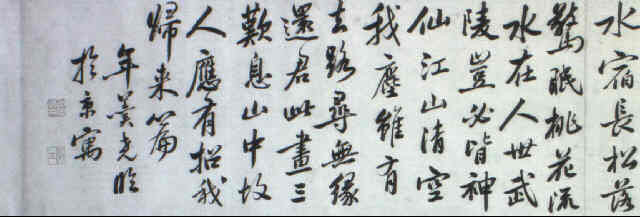 水宿長松落
驚眠桃花流
水在人世武
陵豈必皆神
仙江山清空
我塵雖有
去路尋無緣
還君此畫三
歎息山中故
人應有招我
歸来篇
年羹尭臨
於京寓